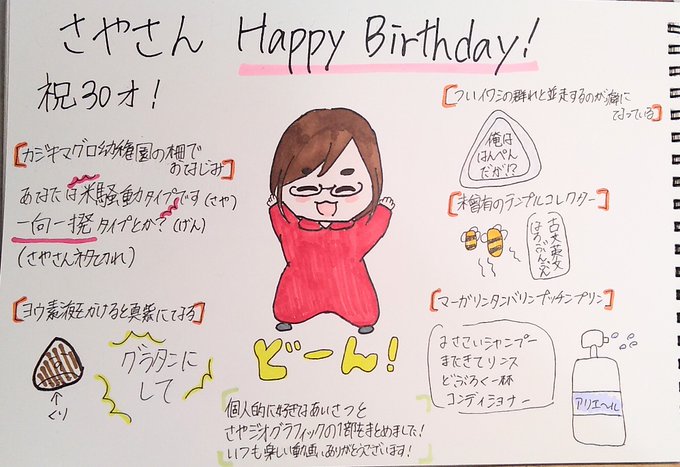 さやさん Happy Birthday!
祝30才!
[カジキマグロ幼稚園の柵で
おなじみ]
あなたは米騒動タイプです(さや)
一向一揆タイプとか?(げん)
(さやさんネタ切れ)
[ヨウ素液をかけると真紫になる]
グラタンに
して
↑
くり
どーん!
[ついイワシの群れと並走するのが癖に
なっている]
俺は
はんぺん
だが!?
[未曽有のテンプルコレクター]
古文英文
ほろぶんぶん
[マーガリンタンバリンプッチンプリン]
よさこいシャンプー
まだきてリンス
どぶろく一杯
コンディショナー
アリエヘル
個人的に好きなあいさつと
さやジオグラフィックの1部をまとめました!
いつも楽しい動画、ありがとうございます!